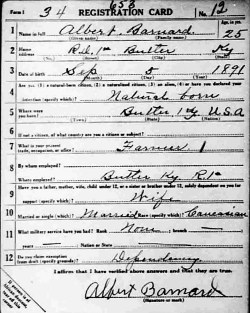 658
Form 1 34 REGISTRATION CARD No. 12
1 Name in full Albert Barnard Age, in yrs. 25
(Given name) (Family name)
2 Home address R.d. 1 Butler Ky
(No.) (Street) (City) (State)
3 Date of birth Sep 5 1891
(Month) (Day) (Year)
4 Are you (1) a natural-born citizen, (2) a naturalized citizen, (3) an alien, (4) or have you declared your
intention (specify which)? Natural born
5 Where were you born? Butler Ky U.S.A
(Town) (State) (Nation)
6 If not a citizen, of what country are you a citizen or subject?
7 What is your present trade, occupation, or office? Farmer 1
8 By whom employed?
Where employed? Butler Ky. R 1
9 Have you a father, mother, wife, child under 12, or a sister or brother under 12, solely dependent on you for
support (specify which)? Wife
10 Married or single (which)? Married Race (specify which)? Caucasian
11 What military service have you had? Rank None ; branch
years ; Nation or State
12 Do you claim exemption from draft (specify grounds)? Dependancy
I affirm that I have verified above answers and that they are true.
Albert Barnard
(Signature or mark)